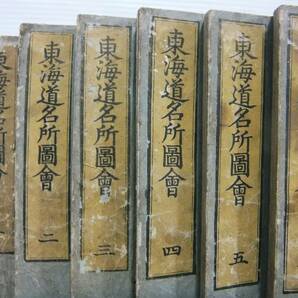 東海道名所圖會 二
東海道名所圖會 三
東海道名所圖會 四
東海道名所圖會 五
海道名所圖會